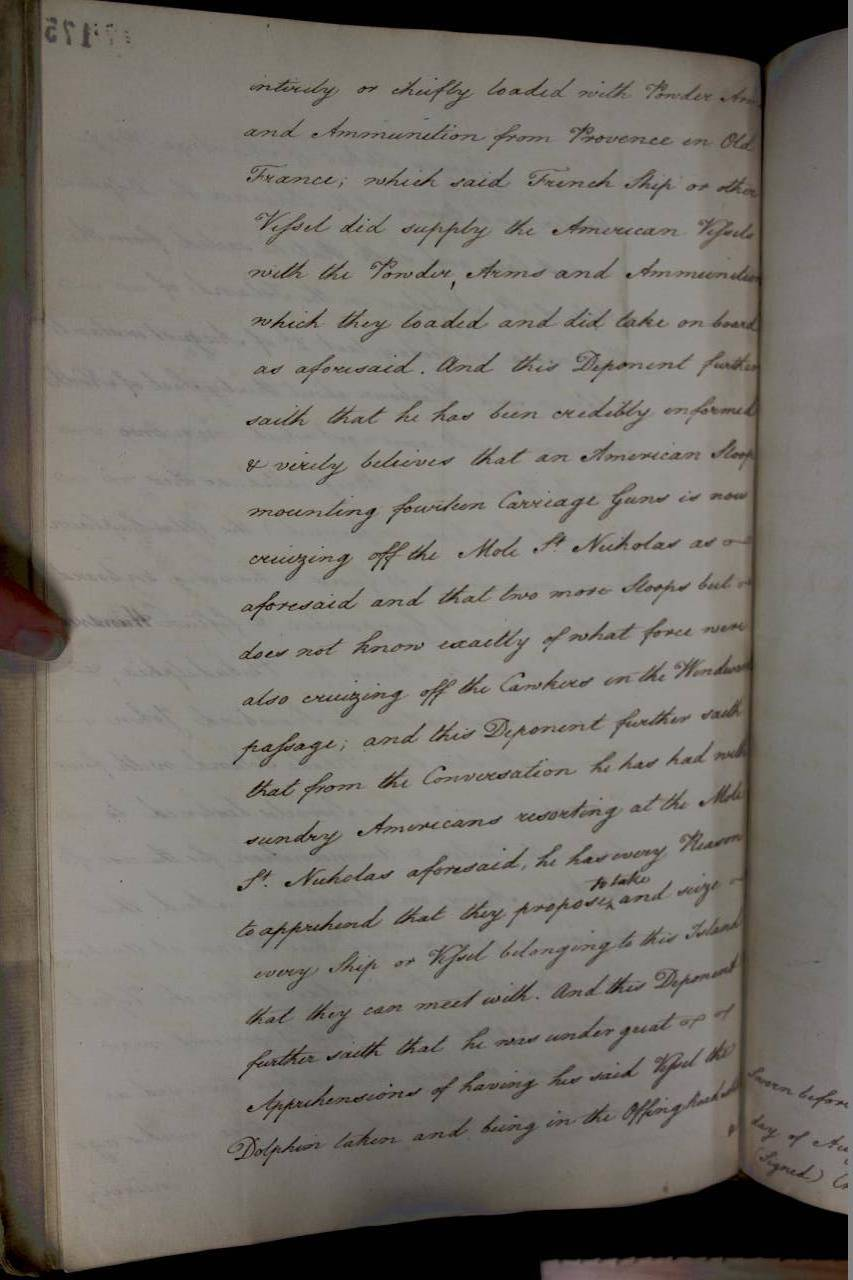 175
intirely or chiefly loaded with Powder Arms
and Ammunition from Provence in Old
France; which said French Ship or other
Vessel did supply the American Vessels
with the Powder, Arms and Ammunition
which they loaded and did take on board
as aforesaid. And this Deponent further
saith that he has been credibly informed
& verily believes that an American Sloop
mounting fourteen Carriage Guns is now
cruizing off the Mole St. Nicholas as
aforesaid and that two more Sloops but
does not know exactly of what force were
also cruizing off the Cawkers in the Windward
passage; and this Deponent further saith
that from the Conversation he has had with
sundry Americans resorting at the Mole
St. Nicholas aforesaid, he has every Reason
to apprehend that they propose to take and seize
every Ship or Vessel belonging to this Island
that they can meet with. And this Deponent
further saith that he was under great
Apprehensions of having his said Vessel the
Dolphin taken and being in the Offing
Sworn before
day of
(Signed)